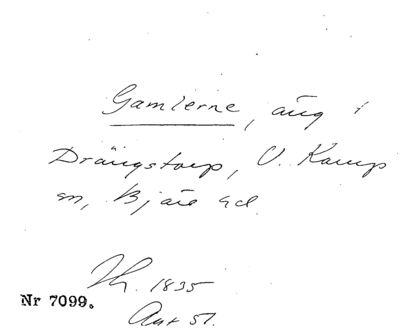 Gamlerne, äng i
Drängstorp, V. Karup
sn, Bjäre hd.
Lh. 1835
Nr 7099.
Akt 51.